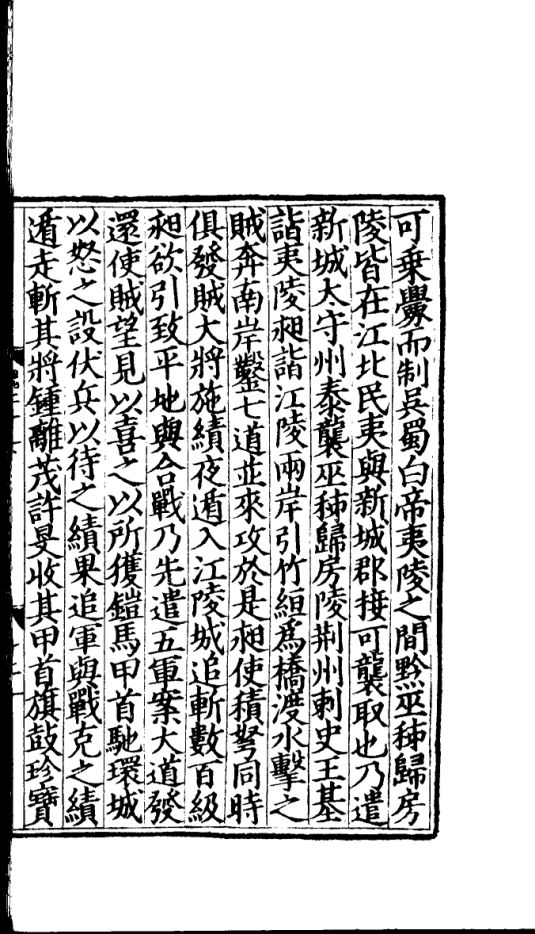 可乗釁而制吳蜀白帝夷陵之間黔巫秭歸房
陵皆在江北民夷與新城郡接可襲取也乃遣
新城太守州泰襲巫秭歸房陵荊州刺史王基
詣夷陵昶詣江陵兩岸引竹絙爲橋渡水擊之
賊奔南岸鑿七道並來攻於是昶使積弩同時
俱發賊大將施績夜遁入江陵城追斬數百級
昶欲引致平地與合戰乃先遣五軍案大道發
還使賊望見以喜之以所獲鎧馬甲首馳環城
以怒之設伏兵以待之績果追軍與戰克之績
遁走斬其將鍾離茂許旻收其甲首旗鼓珍寶